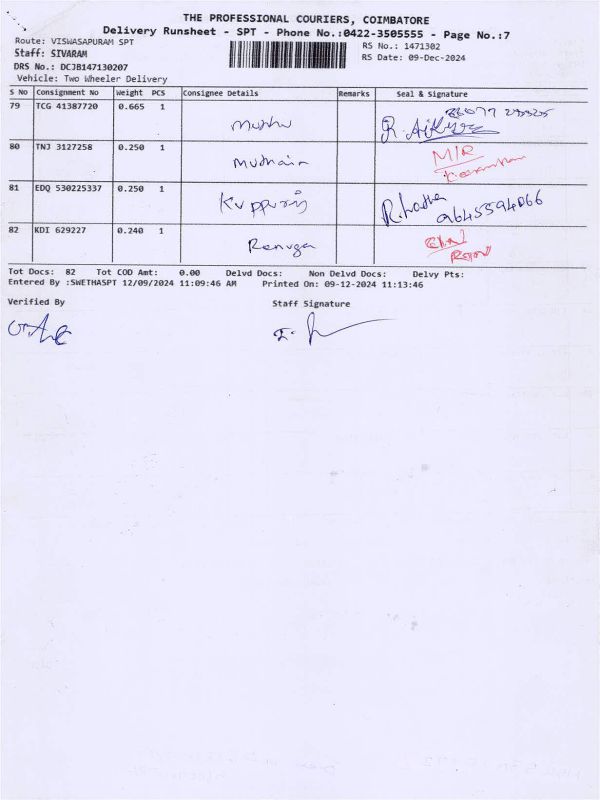 THE PROFESSIONAL COURIERS, COIMBATORE
Delivery Runsheet - SPT - Phone No.:0422-3505555 - Page No.:7
Route: VISWASAPURAM SPT
RS No.: 1471302
Staff: SIVARAM
RS Date: 09-Dec-2024
DRS No.: DCJB147130207
Vehicle: Two Wheeler Delivery
S No Consignment No Weight PCS Consignee Details Remarks Seal & Signature
79 TCG 41387720 0.665 1
Muthu
80 TNJ 3127258 0.250 1
M/R
81 EDQ 530225337 0.250 1
Kuppuraj
82 KDI 629227 0.240 1
Renuga
Tot Docs: 82 Tot COD Amt: 0.00 Delvd Docs: Non Delvd Docs: Delvy Pts:
Entered By :SWETHASPT 12/09/2024 11:09:46 AM Printed On: 09-12-2024 11:13:46
Verified By Staff Signature